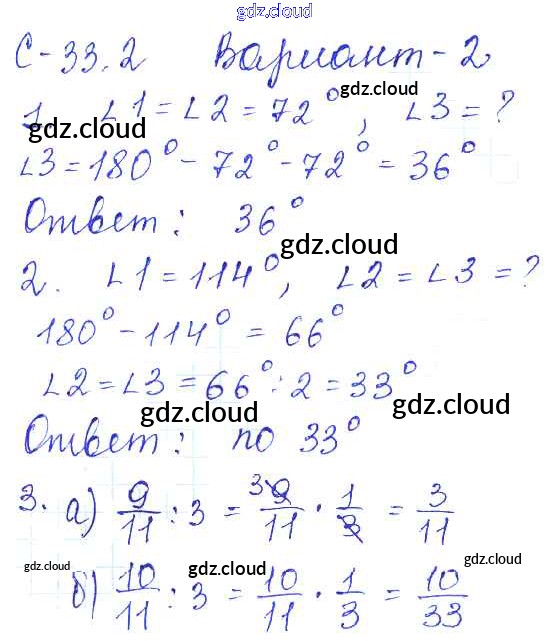 gdz.cloud
С-33.2 Вариант-2
gdz.cloud
1. ∠1=∠2=72°, ∠3=?
gdz.cloud gdz.cloud
∠3=180°-72°-72°=36°
Ответ: 36°
gdz.cloud
2. ∠1=114°, ∠2=∠3=?
180°-114°=66°
∠2=∠3=66°:2=33°
gdz.cloud gdz.cloud
Ответ: по 33°
3. а) 9/11 : 3 = 3 9/11 · 1/3 = 3/11
gdz.cloud gdz.cloud gdz.cloud
б) 10/11 : 3 = 10/11 · 1/3 = 10/33